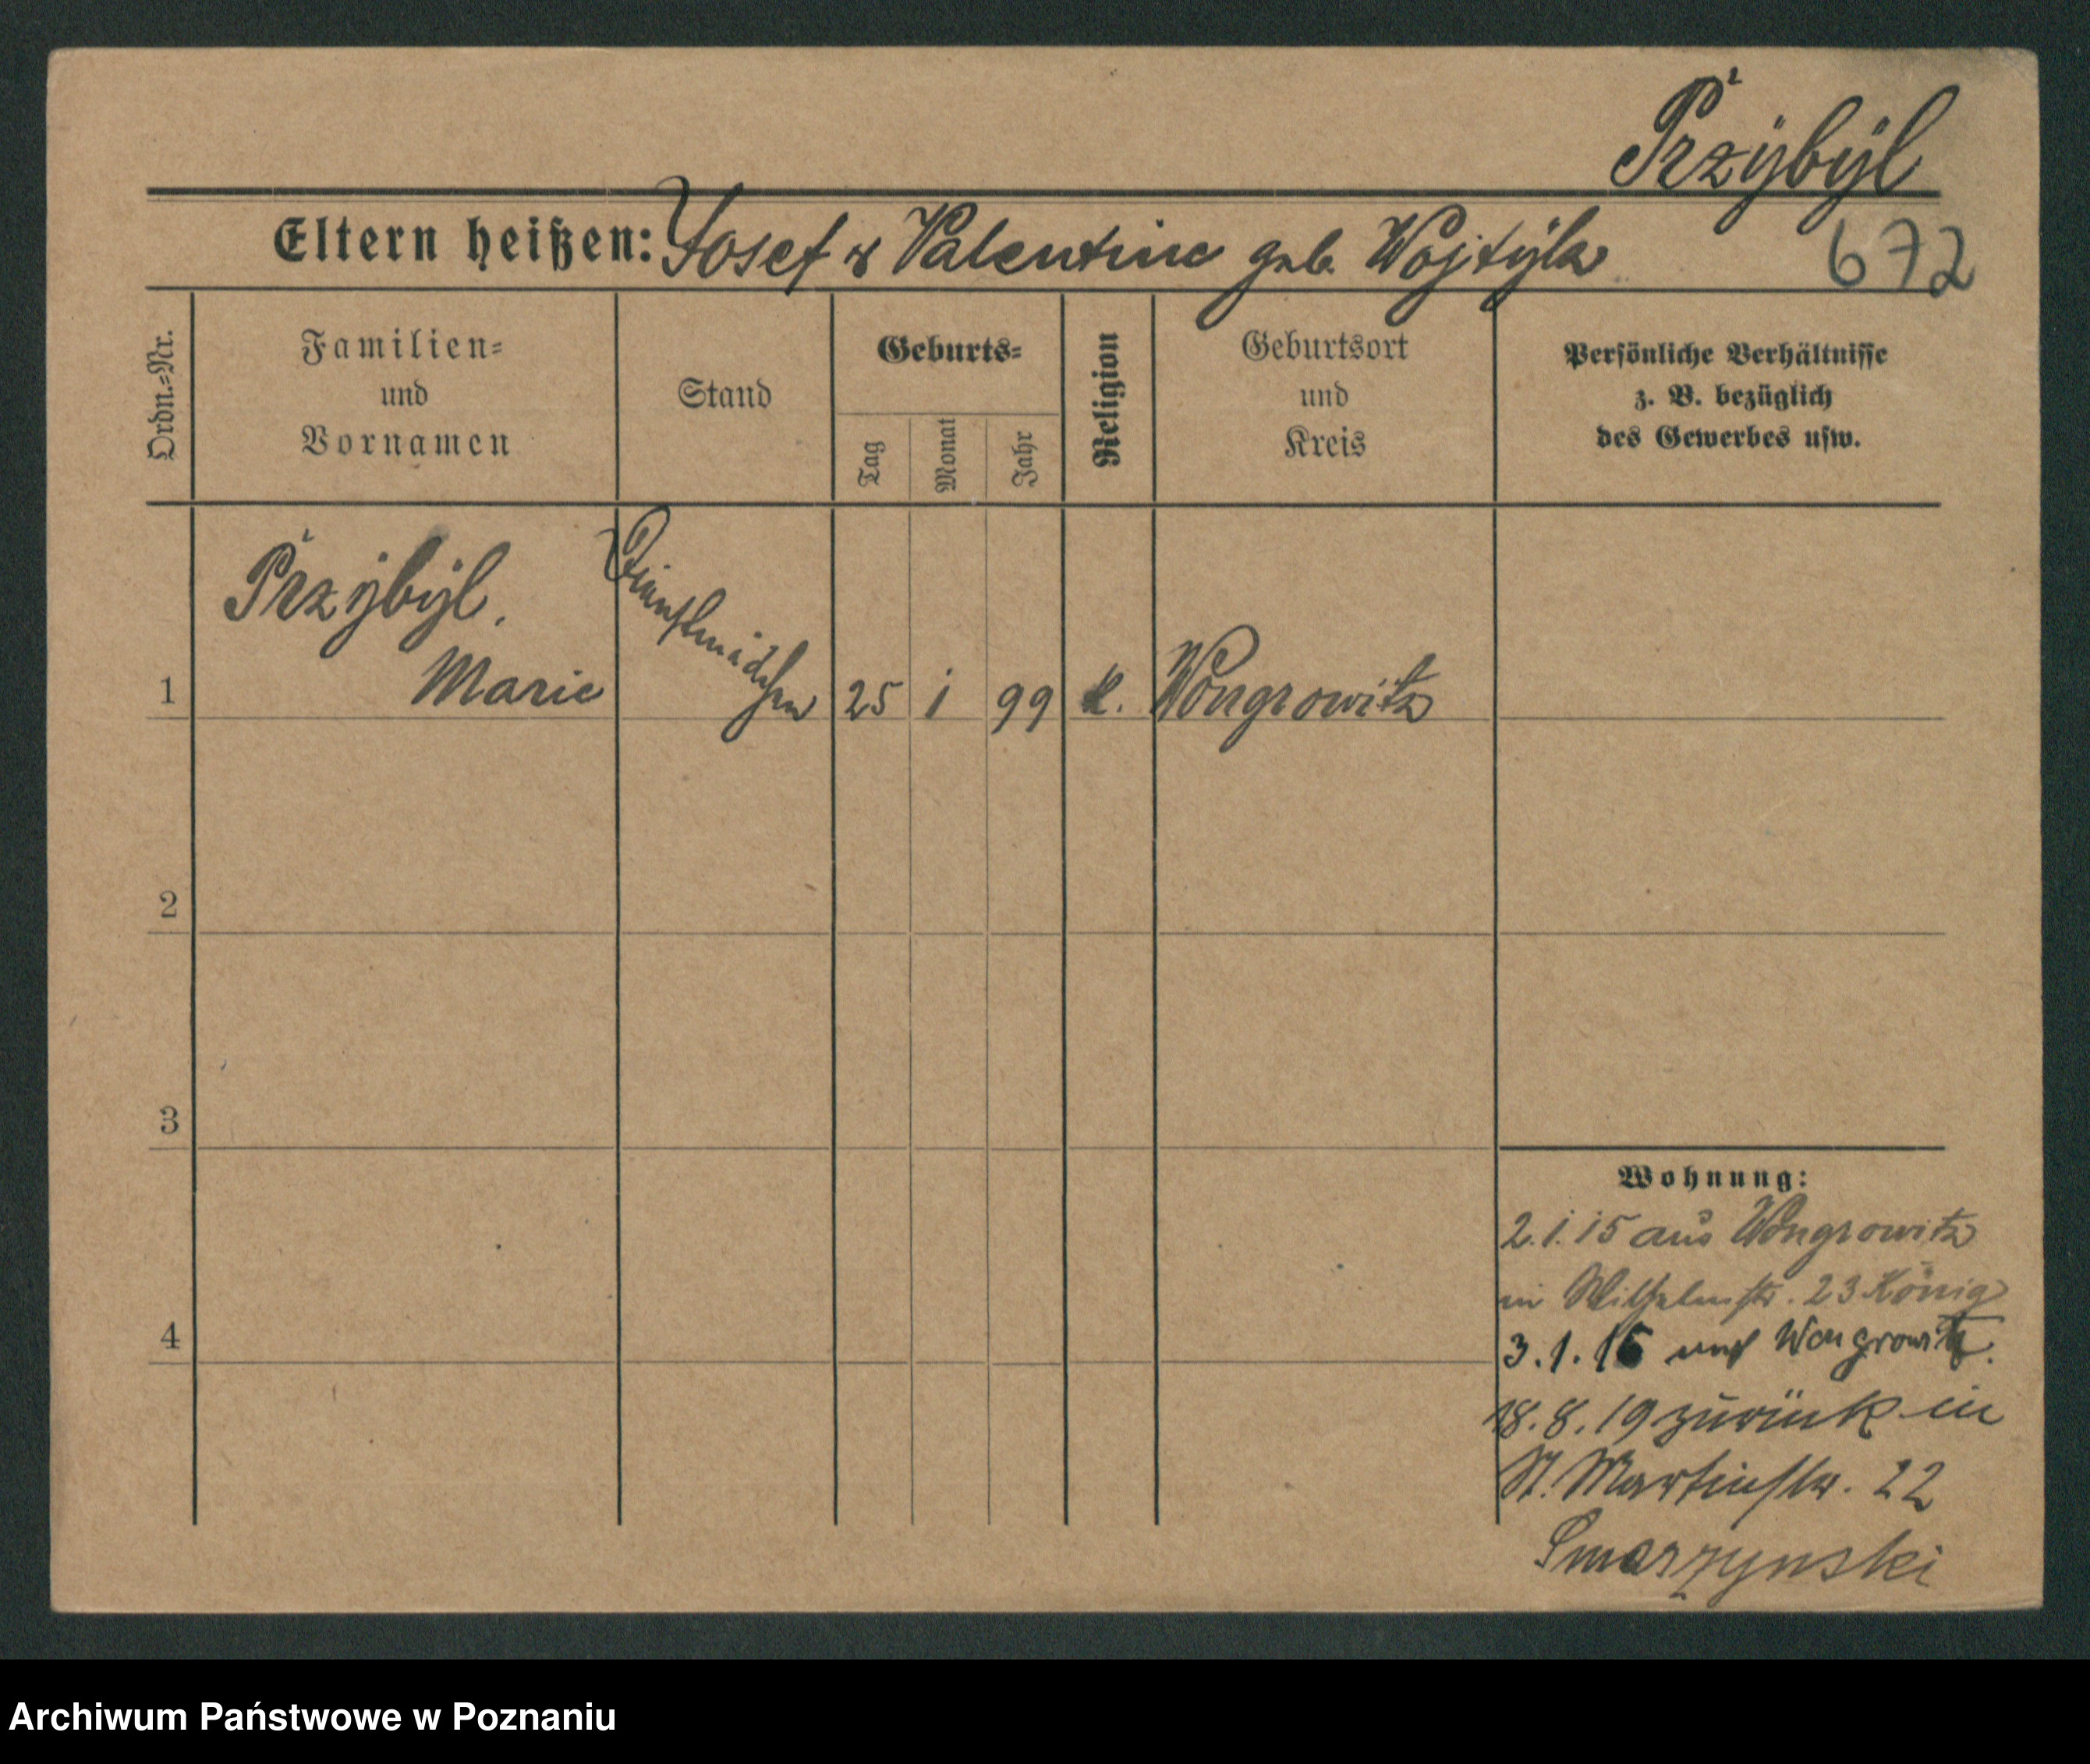 Przÿbÿl
Eltern heißen: Josef & Valentine geb. Wojtÿla
672
Ordn.=Nr.
Familien=
und
Vornamen
Stand
Geburts=
Tag
Monat
Jahr
Religion
Geburtsort
und
Kreis
Persönliche Verhältnisse
z. B. bezüglich
des Gewerbes usw.
1
Przÿbÿl,
Marie
Dienstmädchen
25
1
99
k.
Wongrowitz
2
3
4
Wohnung:
2.1.15 aus Wongrowitz
in Wilhelmstr. 23 König
3.1.16 nach Wongrowitz.
18.8.19 zurück in
St. Martinstr. 22
Smarzynski
Archiwum Państwowe w Poznaniu